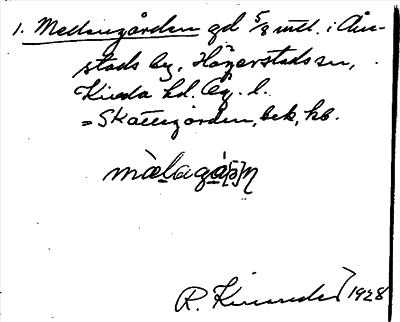 1. Mellangården gd 5/8 mtl. i Åni-
stads by, Högerstads sn,
Kinda hd. Ög. l.
= Skattegården, bek, hb.
màlagå[ɽ]ṇ
R. 1928